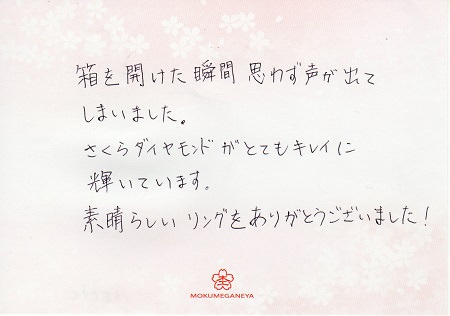 箱を開けた瞬間 思わず声が出て
しまいました。
さくらダイヤモンドがとてもキレイに
輝いています。
素晴らしいリングをありがとうございました！
MOKUMEGANEYA